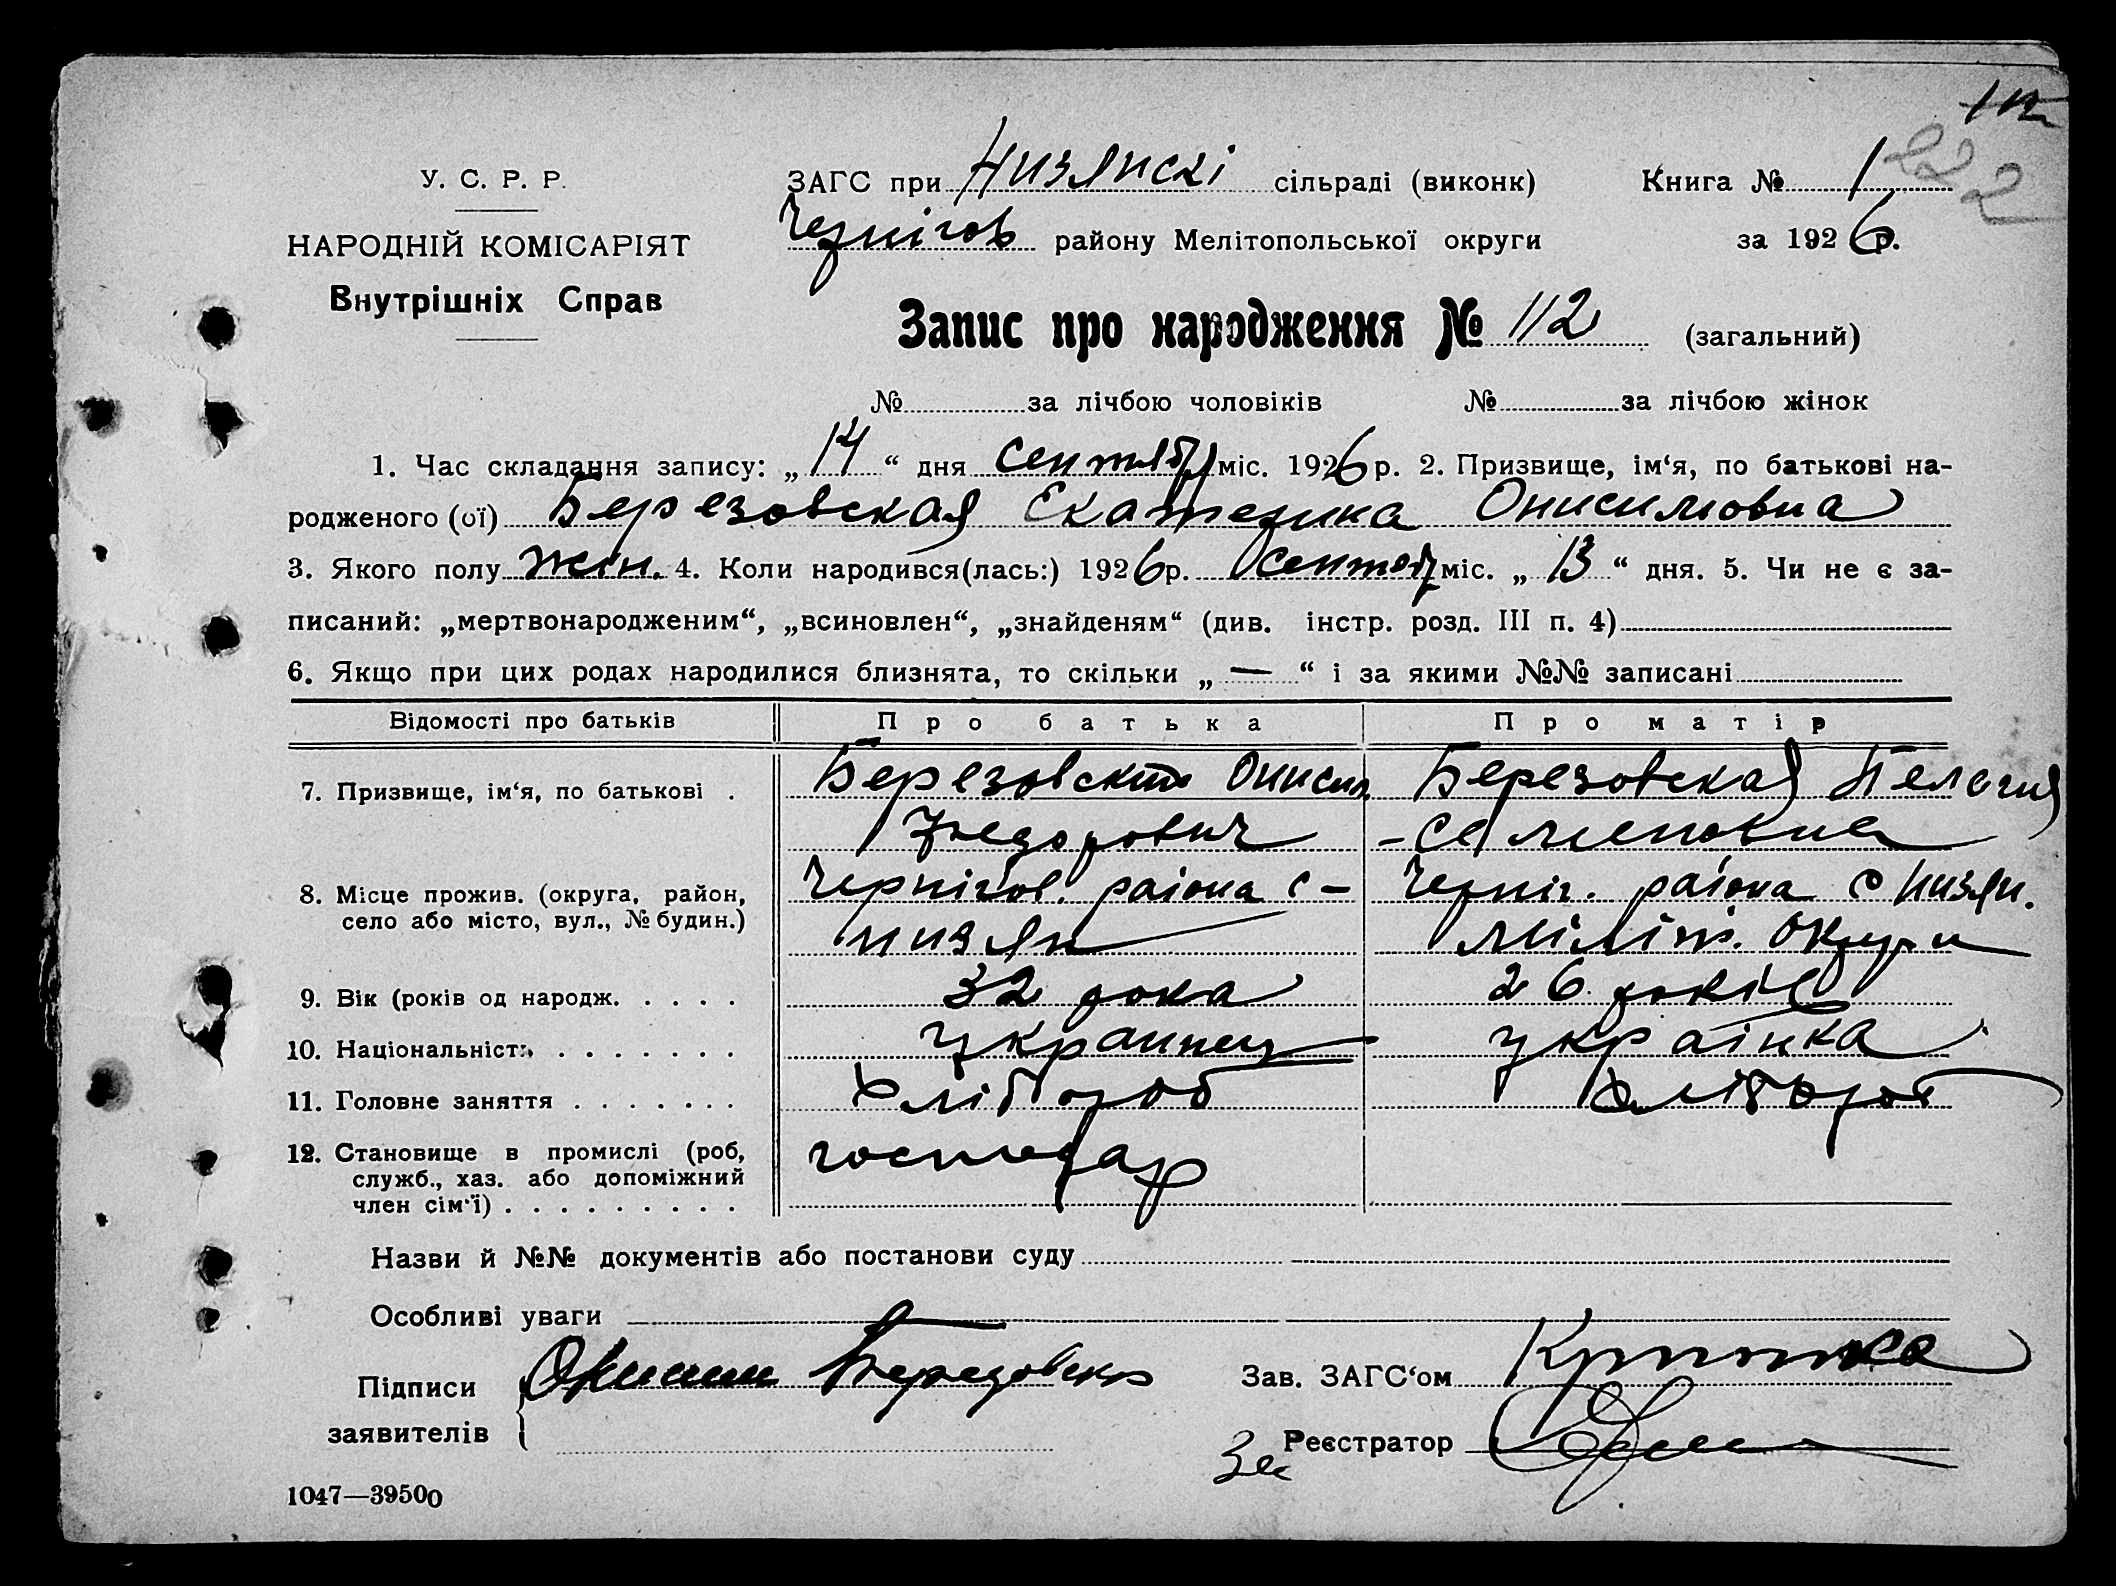 112
222
У. С. Р. Р.
НАРОДНІЙ КОМІСАРІЯТ
Внутрішніх Справ
ЗАГС при Низянскі сільраді (виконк) Книга № 1
Чернігов району Мелітопольської округи за 1926 р.
Запис про народження № 112 (загальний)
№ за лічбою чоловіків № за лічбою жінок
1. Час складання запису: „14“ дня сентября міс. 1926 р. 2. Призвище, ім‘я, по батькові на-
родженого (ої) Березовская Екатерина Онисимовна
3. Якого полу жін. 4. Коли народився(лась:) 1926 р. сентяб міс. „13“ дня. 5. Чи не є за-
писаний: „мертвонародженим“, „всиновлен“, „знайденям“ (див. інстр. розд. III п. 4)
6. Якщо при цих родах народилися близнята, то скільки „—“ і за якими №№ записані
Відомості про батьків Про батька Про матір
7. Призвище, ім‘я, по батькові . Березовский Онисим Березовская Пелагия
Федорович -Семеновна
8. Місце прожив. (округа, район, Чернігов. раіона с- Черніг. раіона с Низян.
село або місто, вул., № будин.) низян Мліт. Округи
9. Вік (років од народж. . . . . 32 рока 26 років
10. Національність . . . . . . . украинец украінка
11. Головне заняття . . . . . . . хлібороб хлібороб
12. Становище в промислі (роб, господар
служб., хаз. або допоміжний
член сім‘ї) . . . . . . . . .
Назви й №№ документів або постанови суду
Особливі уваги
Підписи Онисим Березовский Зав. ЗАГС‘ом
заявителів За Реєстратор
1047—39500